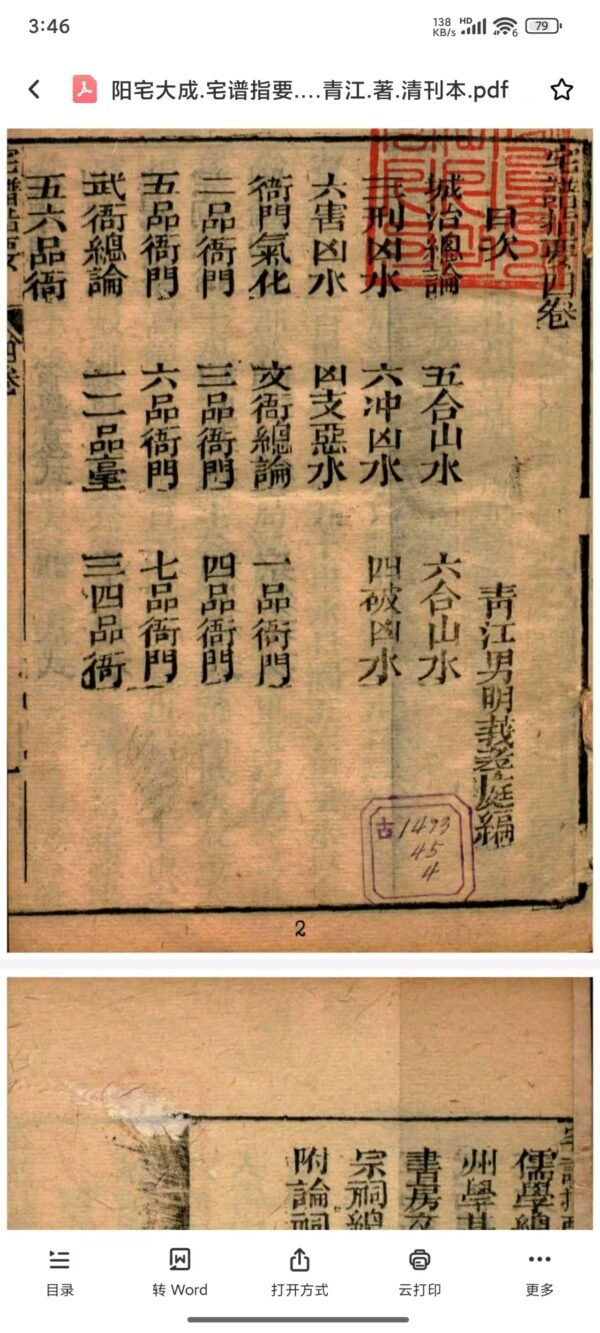 3:46
138 KB/s HD 6 79
阳宅大成.宅谱指要....青江.著.清刊本.pdf
宅譜指要四卷
目次
青江男明莪孝庭編
城治總論 五合山水 六合山水
三刑凶水 六冲凶水 四破凶水
六害凶水 凶支惡水
衙門氣化 文衙總論 一品衙門
二品衙門 三品衙門 四品衙門
五品衙門 六品衙門 七品衙門
武衙總論 一二品臺 三四品衙
五六品衙
古 1493
45
4
2
儒學總
州學
書房
宗祠總
附論祠
目录
转 Word
打开方式
云打印
更多